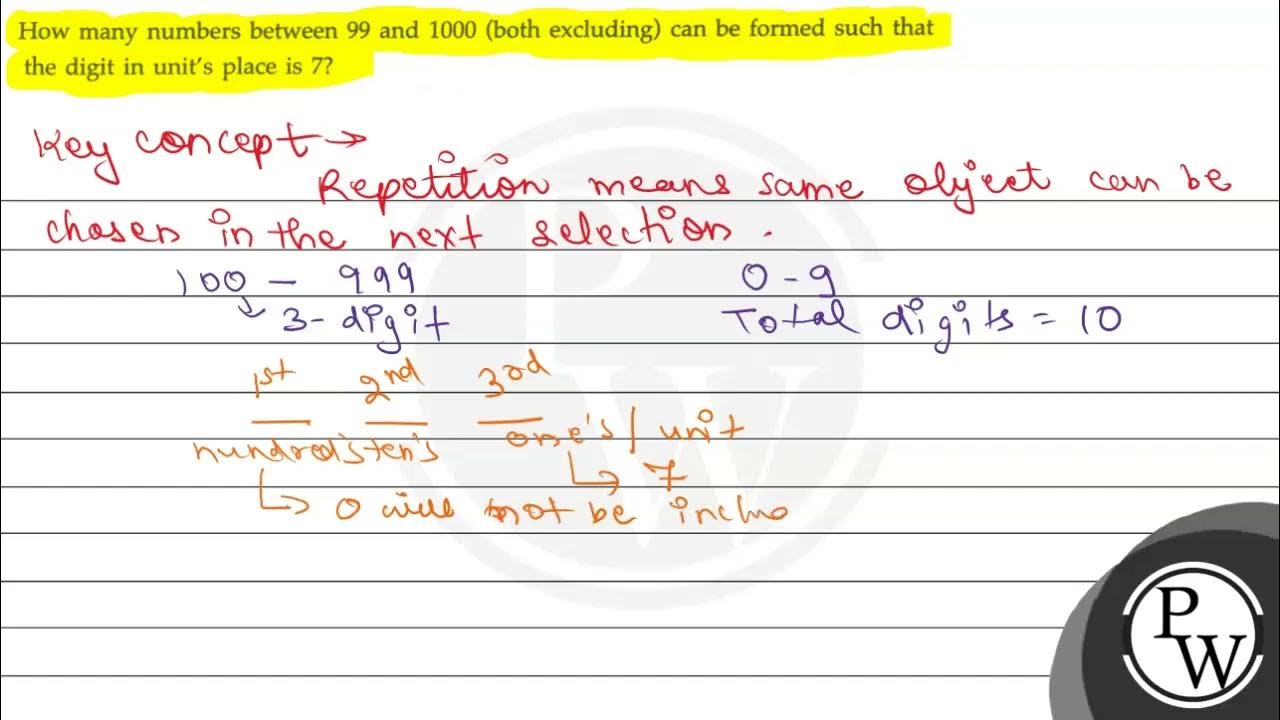 How many numbers between 99 and 1000 (both excluding) can be formed such that
the digit in unit's place is 7?
Key concept →
Repetition means same object can be
chosen in the next selection.
100 - 999 0-9
↳ 3-digit Total digits = 10
1st 2nd 3rd
hundred's ten's one's/unit
↳ 7
↳ 0 will not be inclu
PW
P
W